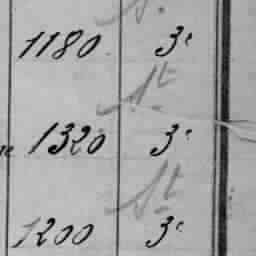 1180 3.
St.
1320 3.
St.
1200 3.